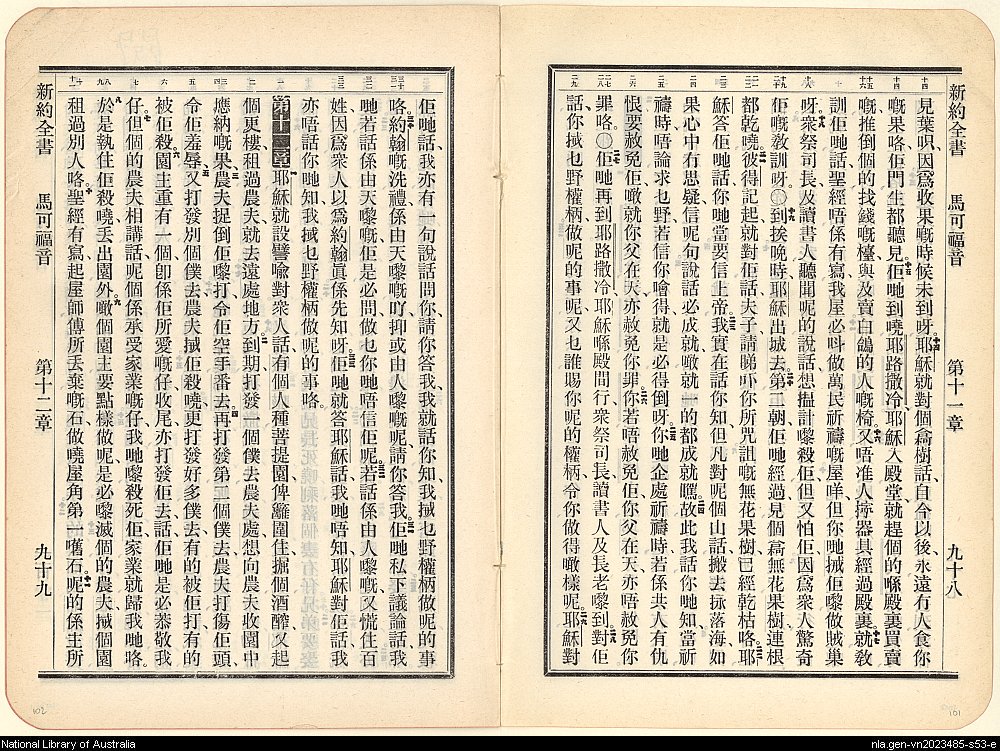 新約全書 馬可福音 第十一章 九十八
見葉呮因為收果嘅時候未到呀耶穌就對個樖樹話自今以後永遠冇人食你
嘅果咯佢門生都聽見佢哋到嘵耶路撒冷耶穌入殿堂就趕個的喺殿裏買賣
嘅推倒個的找錢嘅檯與及賣白鴿的人嘅椅又唔准人㨢器具經過殿裏就敎
訓佢哋話聖經唔係有寫我屋必呌做萬民祈禱嘅屋咩但你哋㧯佢嚟做賊巢
呀衆祭司長及讀書人聽聞呢的說話想揾計嚟殺佢但又怕佢因爲衆人驚奇
佢嘅敎訓呀〇到挨晚時耶穌出城去第二朝佢哋經過見個樖無花果樹連根
都乾嘵彼得記起就對佢話夫子請睇吓你所咒詛嘅無花果樹已經乾枯咯耶
穌答佢哋話你哋當要信上帝我實在話你知但凡對呢個山話搬去掁落海如
果心中有思疑信呢句說話必成就噉就一的都成就嚦故此我話你哋知當祈
禱時唔論求乜野若信你噲得就是必得倒呀你哋企處祈禱時若係共人有仇
恨要赦免佢噉就你父在天亦赦免你罪你若唔赦免佢你父在天亦唔赦免你
罪咯〇佢哋再到耶路撒冷耶穌喺殿間行衆祭司長讀書人及長老嚟到對佢
話你㧯乜野權柄做呢的事呢又乜誰賜你呢的權柄令你做得噉樣呢耶穌對
佢哋話我亦有一句說話問你請你答我我就話你知我㧯乜野權柄做呢的事
咯約翰嘅洗禮係由天嚟嘅吖抑或由人嚟嘅呢請你答我佢哋私下議論話我
哋若話係由天嚟嘅佢是必問做乜你哋唔信佢呢若話係由人嚟嘅又慌住百
姓因爲衆人以爲約翰眞係先知呀佢哋就答耶穌話我哋唔知耶穌對佢話我
亦唔話你哋知我㧯乜野權柄做呢的事咯
第十二章 耶穌就設譬喻對衆人話有個人種菩提園俾籬圍住掘個酒醡又起
個更樓租過農夫就去遠處地方到期打發一個僕去農夫處想向農夫收園中
應納嘅果農夫捉倒佢嚟打令佢空手番去再打發第二個僕去農夫打傷佢頭
令佢羞辱又打發別個僕去農夫㧯佢殺嘵更打發好多僕去有的被佢打有的
被佢殺園主重有一個卽係佢所愛嘅仔收尾亦打發佢去話佢哋是必恭敬我
仔但個的農夫相講話呢個係承受家業嘅仔我哋嚟殺死佢家業就歸我哋咯
於是執住佢殺嘵丟出園外噉個園主要點樣做呢是必嚟滅個的農夫㧯個園
租過別人咯聖經有寫起屋師傅所丟棄嘅石做嘵屋角第一嚿石呢的係主所
新約全書 馬可福音 第十二章 九十九
102
101
National Library of Australia
nla.gen-vn2023485-s53-e